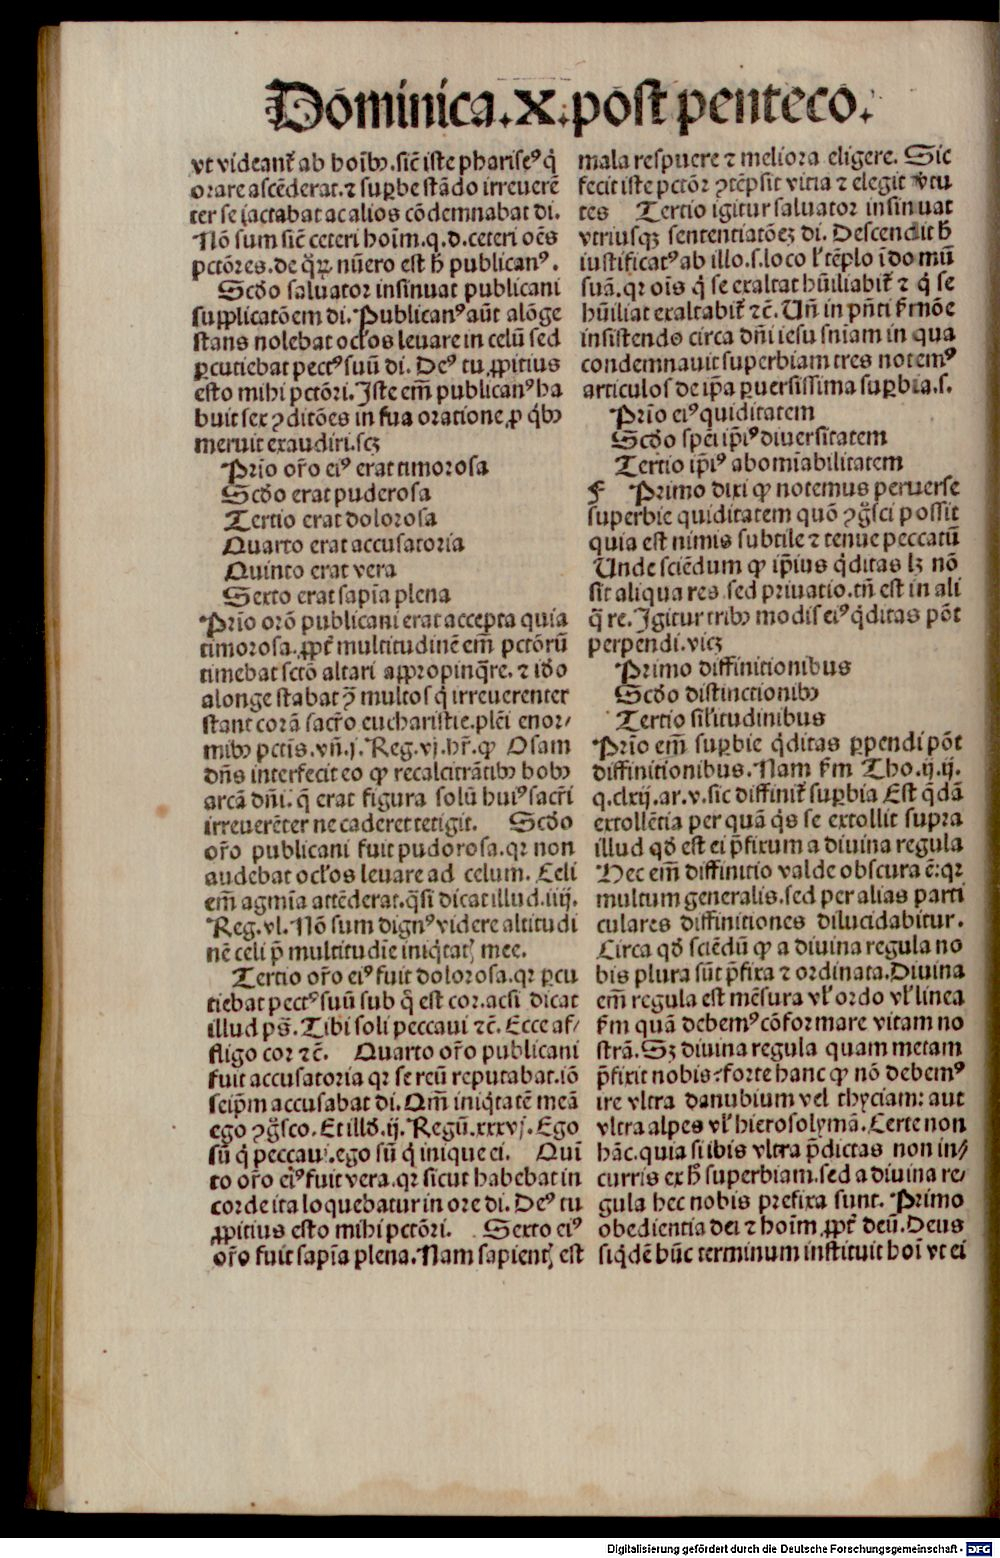 Dōminica.X.post penteco.
vt videant᷑ ab hoīb⁹.sic̄ iste pharise⁹ q̇
orare ascēderat.⁊ suꝑbe stādo irreuerē
ter se iactabat ac alios cōdemnabat di.
Nō sum sic̄ ceteri hoīm.q.d.ceteri oēs
pctōres.de q̇ꝝ nūero est h̄ publican⁹.
Scd̄o saluator insinuat publicani
supplicatōem di.Publican⁹ aūt alōge
stans nolebat ocl'os leuare in celū sed
ꝑcutiebat pect⁹ suū di. De⁹ tu ꝓpitius
esto mihi pctōri.Iste em̄ publican⁹ ha
buit sex ꝯditōes in sua oratione ꝓ q̇b⁹
meruit exaudiri.scꝫ
Prīo or̄o ei⁹ erat timorosa
Scd̄o erat puderosa
Tertio erat dolorosa
Quarto erat accusatoria
Quinto erat vera
Sexto erat sapīa plena
Prīo orō publicani erat accepta quia
timorosa.ꝓpt᷑ multitudinē em̄ pctōrū
timebat sctō altari appropinq̄re.⁊ id̄o
alonge stabat ꝯ̄ multos q̇ irreuerenter
stant corā sacr̄o eucharistie.plēi enor⸗
mib⁹ pctis.vn̄.j.Reg.vj.hr̄.ꝙ Osam
dn̄s interfecit eo ꝙ recalcitrātib⁹ bob⁹
arcā dn̄i.q̄ erat figura solū hui⁹ sacr̄i
irreuerēter ne caderet tetigit. Scd̄o
or̄o publicani fuit pudorosa.qr non
audebat ocl'os leuare ad celum. Celi
em̄ agmīa attēderat.q̄si dicat illud.iiij.
Reg.vl.Nō sum dign⁹ videre altitudi
nē celi p̄ multitudīe iniq̇tatꝭ mee.
Tertio or̄o ei⁹ fuit dolorosa.qr ꝑcu
tiebat pect⁹ suū sub q̄ est cor.acsi dicat
illud ps̄.Tibi soli peccaui ⁊c̄. Ecce af⸗
fligo cor ⁊c̄. Quarto or̄o publicani
fuit accusatoria qr se reū reputabat.iō
seip̄m accusabat di.Qm̄ iniq̇tatē meā
ego ꝯg̃sco.Et illd̄.ij.Regū.xxxvj.Ego
sū q̇ peccaui.ego sū q̇ inique ei. Quī
to or̄o ei⁹ fuit vera.qr sicut habebat in
corde ita loquebatur in ore di.De⁹ tu
ꝓpitius esto mihi pctōri. Sexto ei⁹
or̄o fuit sapīa plena.Nam sapientꝭ est
mala respuere ⁊ meliora eligere. Sic
fecit iste pctōr ꝯtēpsit vitia ⁊ elegit v̄tu
tes Tertio igitur saluator insinuat
vtriusqꝫ sententiatōeꝫ di. Descendit h̄
iustificat⁹ ab illo.s.loco l' tēplo ī domū
suā.qr oīs q̇ se exaltat hūiliabit᷑ ⁊ q̇ se
hūiliat exaltabit᷑ ⁊c̄. Un̄ in pn̄ti s̄mōe
insistendo circa dn̄i iesu sn̄iam in qua
condemnauit superbiam tres notem⁹
articulos de ip̄a ꝑuersissima suꝑbia.s.
Prīo ei⁹ quiditatem
Scd̄o spēi ip̄i⁹ diuersitatem
Tertio ip̄i⁹ abomīabilitatem
F Primo dixi ꝙ notemus peruerse
superbie quiditatem quō ꝯg̃sci possit
quia est nimis subtile ⁊ tenue peccatū
Unde sciēdum ꝙ ip̄ius q̇ditas lꝫ nō
sit aliqua res sed priuatio.tn̄ est in ali
q̄ re.Igitur trib⁹ modis ei⁹ q̇ditas pōt
perpendi.vicꝫ
Primo diffinitionibus
Scd̄o distinctionib⁹
Tertio sil'itudinibus
Prīo em̄ suꝑbie q̇ditas ꝑpendi pōt
diffinitionibus.Nam s̄m Tho.ij.ij.
q.clxij.ar.v.sic diffinit᷑ suꝑbia Est q̇dā
extollētia per quā q̇s se extollit supra
illud qd̄ est ei p̄fixum a diuina regula
Hec em̄ diffinitio valde obscura ē:qr
multum generalis.sed per alias parti
culares diffinitiones dilucidabitur.
Circa qd̄ sciēdū ꝙ a diuina regula no
bis plura sūt p̄fixa ⁊ ordinata.Diuina
em̄ regula est mēsura vl' ordo vl' linea
s̄m quā debem⁹ cōformare vitam no
strā.Sꝫ diuina regula quam metam
p̄fixit nobis:forte hanc ꝙ nō debem⁹
ire vltra danubium vel thyciam: aut
vltra alpes vl' hierosolymā.Certe non
hāc.quia si ibis vltra p̄dictas non in⸗
curris ex h̄ superbiam.sed a diuina re⸗
gula hec nobis prefixa sunt. Primo
obedientia dei ⁊ hoīm ꝓpt᷑ deū.Deus
siq̇dē hūc terminum instituit hoī vt ei
Digitalisierung gefördert durch die Deutsche Forschungsgemeinschaft - DFG